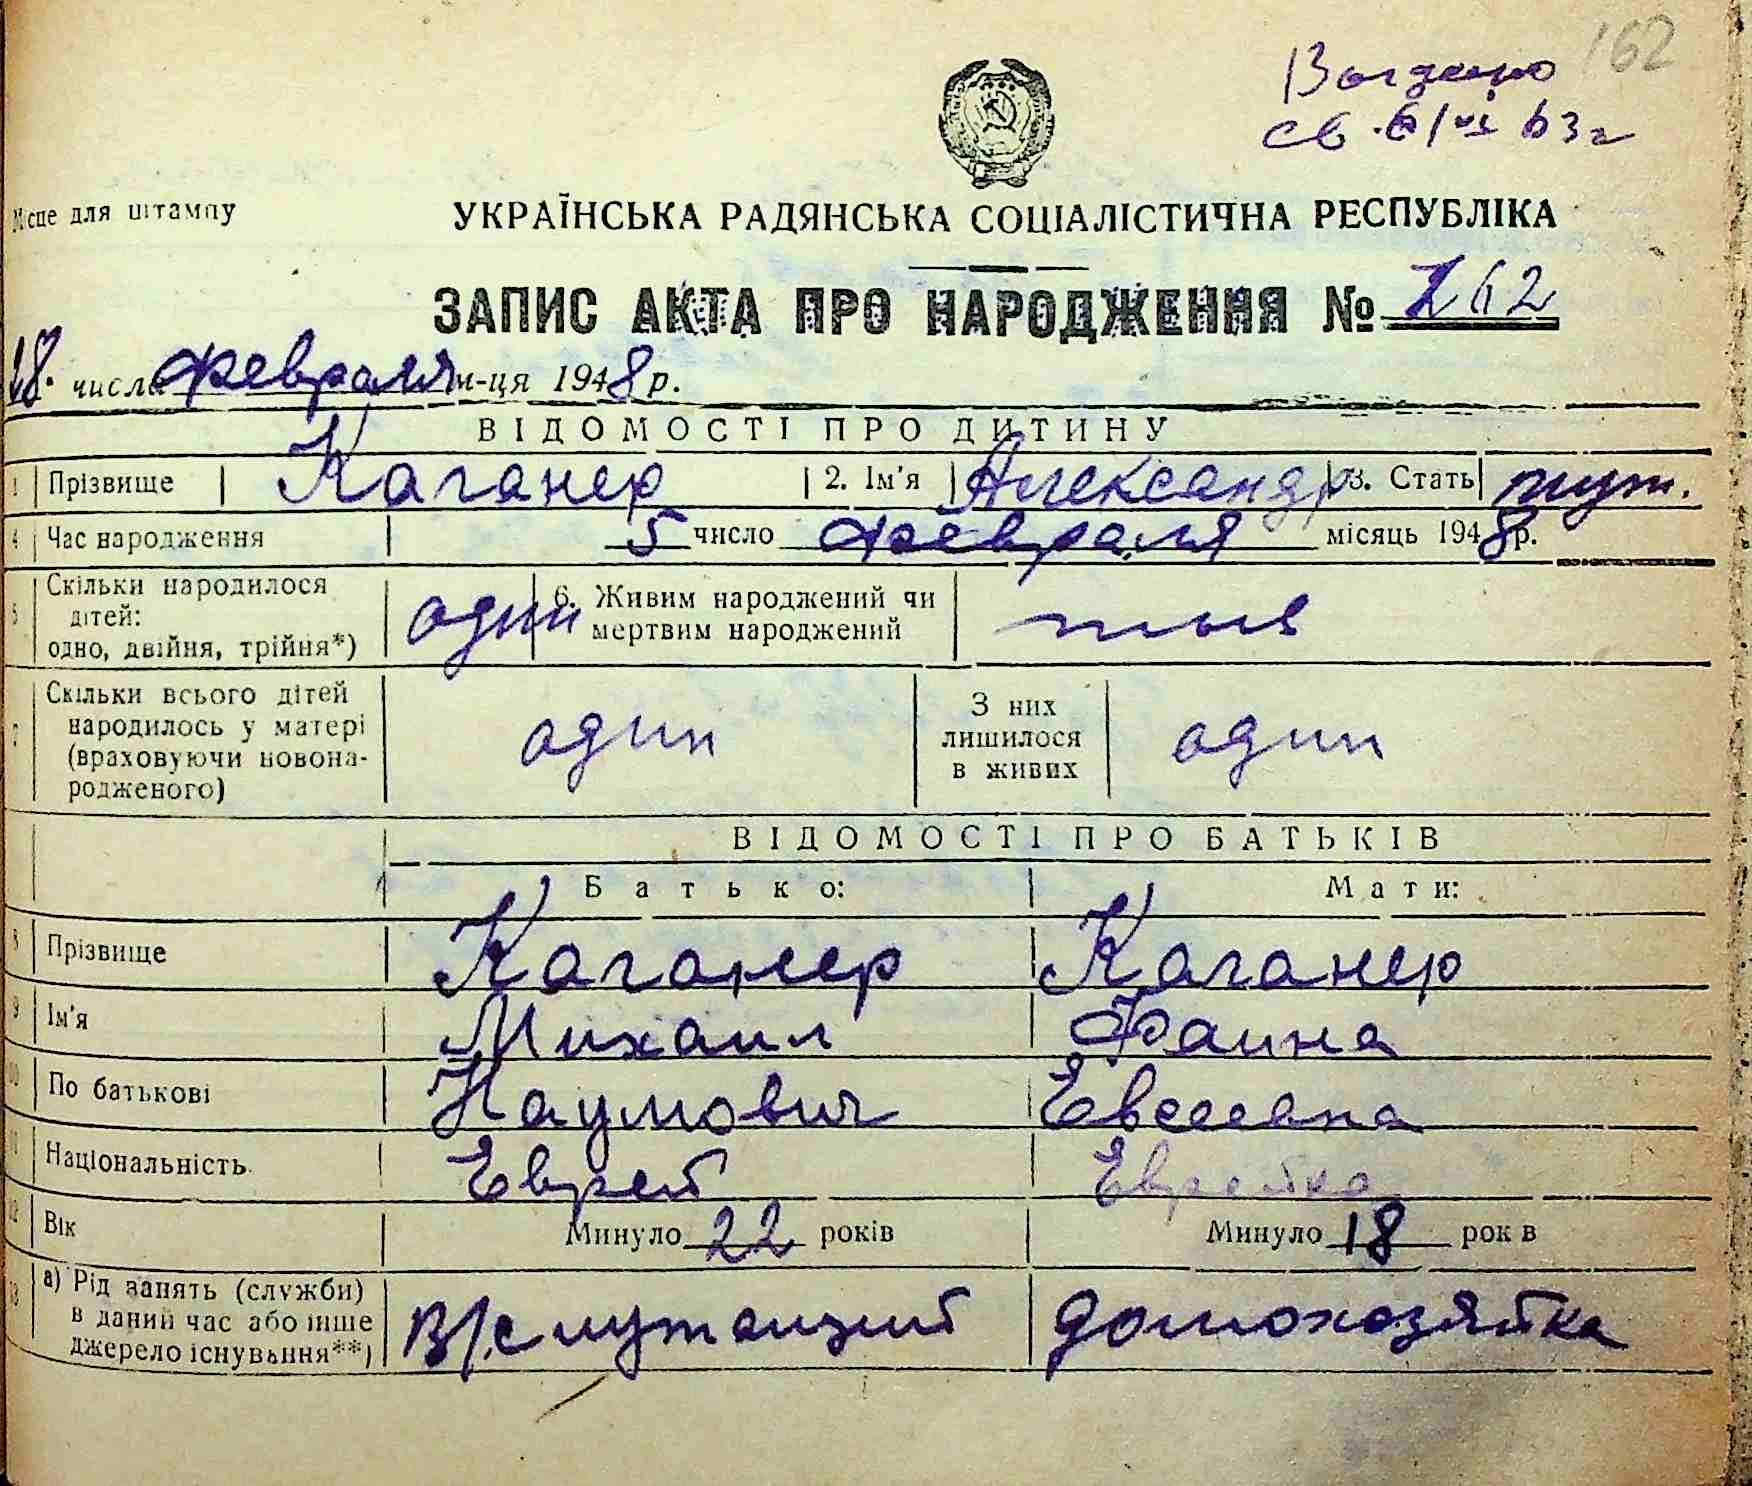 162
Выдано
св. 6/VI 63 г
Місце для штампу
УКРАЇНСЬКА РАДЯНСЬКА СОЦІАЛІСТИЧНА РЕСПУБЛІКА
ЗАПИС АКТА ПРО НАРОДЖЕННЯ № 162
18. числа февраля м-ця 1948 р.
ВІДОМОСТІ ПРО ДИТИНУ
1 Прізвище Каганер 2. Ім'я Александр 3. Стать муж.
4 Час народження 5 число февраля місяць 1948 р.
5 Скільки народилося дітей: одно, двійня, трійня*) один 6. Живим народжений чи мертвим народжений
7 Скільки всього дітей народилось у матері (враховуючи новонародженого) один З них лишилося в живих один
ВІДОМОСТІ ПРО БАТЬКІВ
Батько: Мати:
8 Прізвище Каганер Каганер
9 Ім'я Михаил Фаина
10 По батькові Наумович Евсеевна
11 Національність Еврей Еврейка
12 Вік Минуло 22 років Минуло 18 років
13 а) Рід занять (служби) в даний час або інше джерело існування**) В/служащий домохозяйка